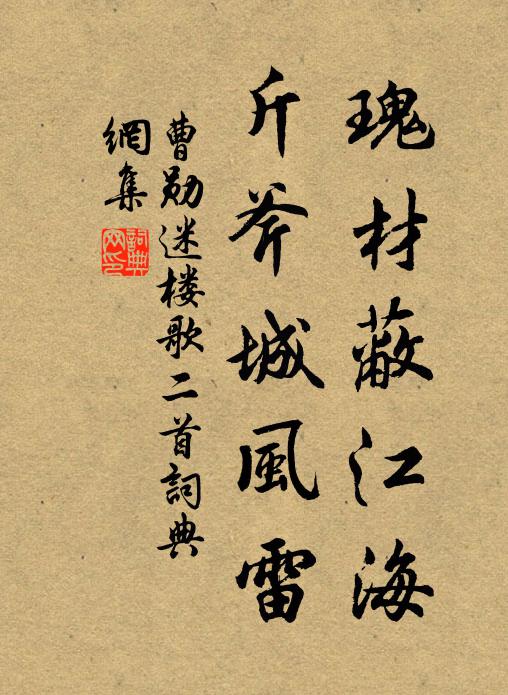 瑰材蔽江海
斤斧城風雷
曹勛迷楼歌二首詞典
網集
詞典網印